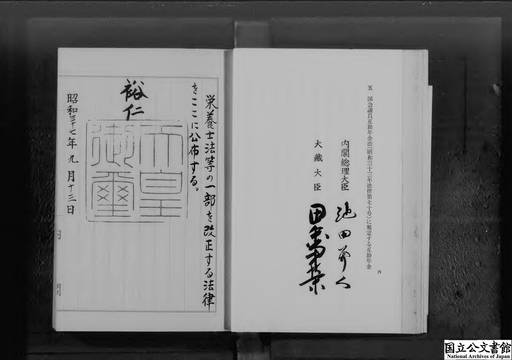 五　国会議員互助年金法（昭和三十三年法律第七十号）に規定する互助年金
内閣総理大臣　池田勇人
大蔵大臣　田中角榮
栄養士法等の一部を改正する法律
をここに公布する。
裕仁
天皇御璽
昭和三十七年九月十三日
国立公文書館
National Archives of Japan